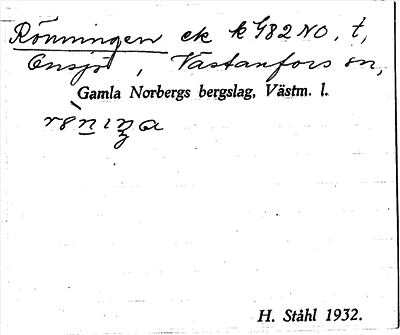 Rönningen ek k 482 NO, t,
Ensjö, Västanfors sn,
Gamla Norbergs bergslag, Västm. l.
H. Ståhl 1932.